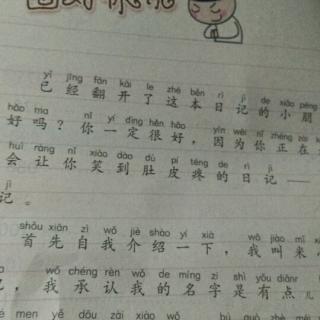 yǐ jīng fān kāi le zhè běn rì jì de xiǎo péng
已经翻开了这本日记的小朋
hǎo ma nǐ yí dìng hěn hǎo yīn wèi nǐ zhèng zài
好吗？你一定很好，因为你正在
huì ràng nǐ xiào dào dù pí téng de rì jì
会让你笑到肚皮疼的日记——
jì
记。
shǒu xiān zì wǒ jiè shào yí xià wǒ jiào mǐ
首先自我介绍一下，我叫米
wǒ chéng rèn wǒ de míng zi shì yǒu diǎnr
，我承认我的名字是有点儿
men yě dōu zài xiào wǒ bú guò zhè